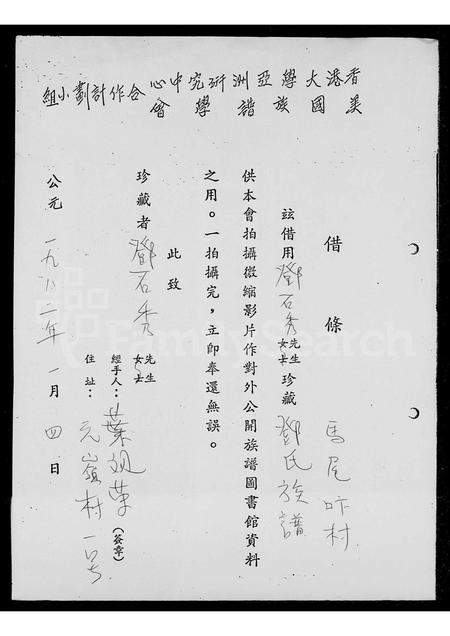 香港大學亞洲研究中心
美國族譜學會
合作計劃小組
借條
馬尾吓村
玆借用鄧石秀先生女士珍藏鄧氏族譜
供本會拍攝微縮影片作對外公開族譜圖書館資料
之用。一拍攝完,立即奉還無誤。
此致
珍藏者鄧石秀先生女士
經手人:葉祖華(簽章)
住址:元嶺村一号
公元一九八二年一月四日
FamilySearch